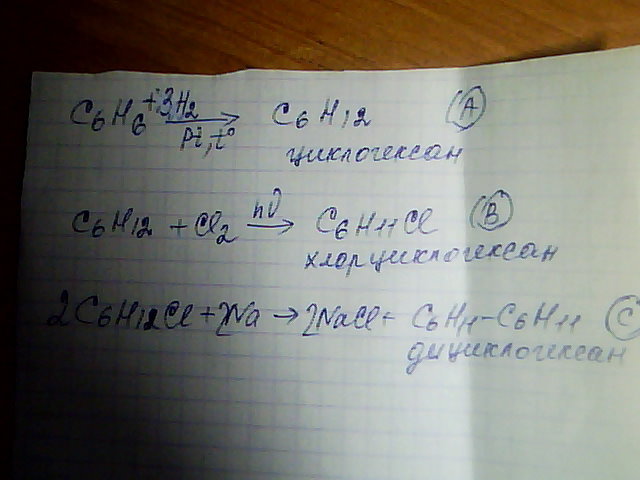 C₆H₆ +3H₂ → C₆H₁₂ (A)
Pt, t°
циклогексан
C₆H₁₂ + Cl₂ hν → C₆H₁₁Cl (B)
хлорциклогексан
2C₆H₁₂Cl + 2Na → 2NaCl + C₆H₁₁–C₆H₁₁ (C)
дициклогексан